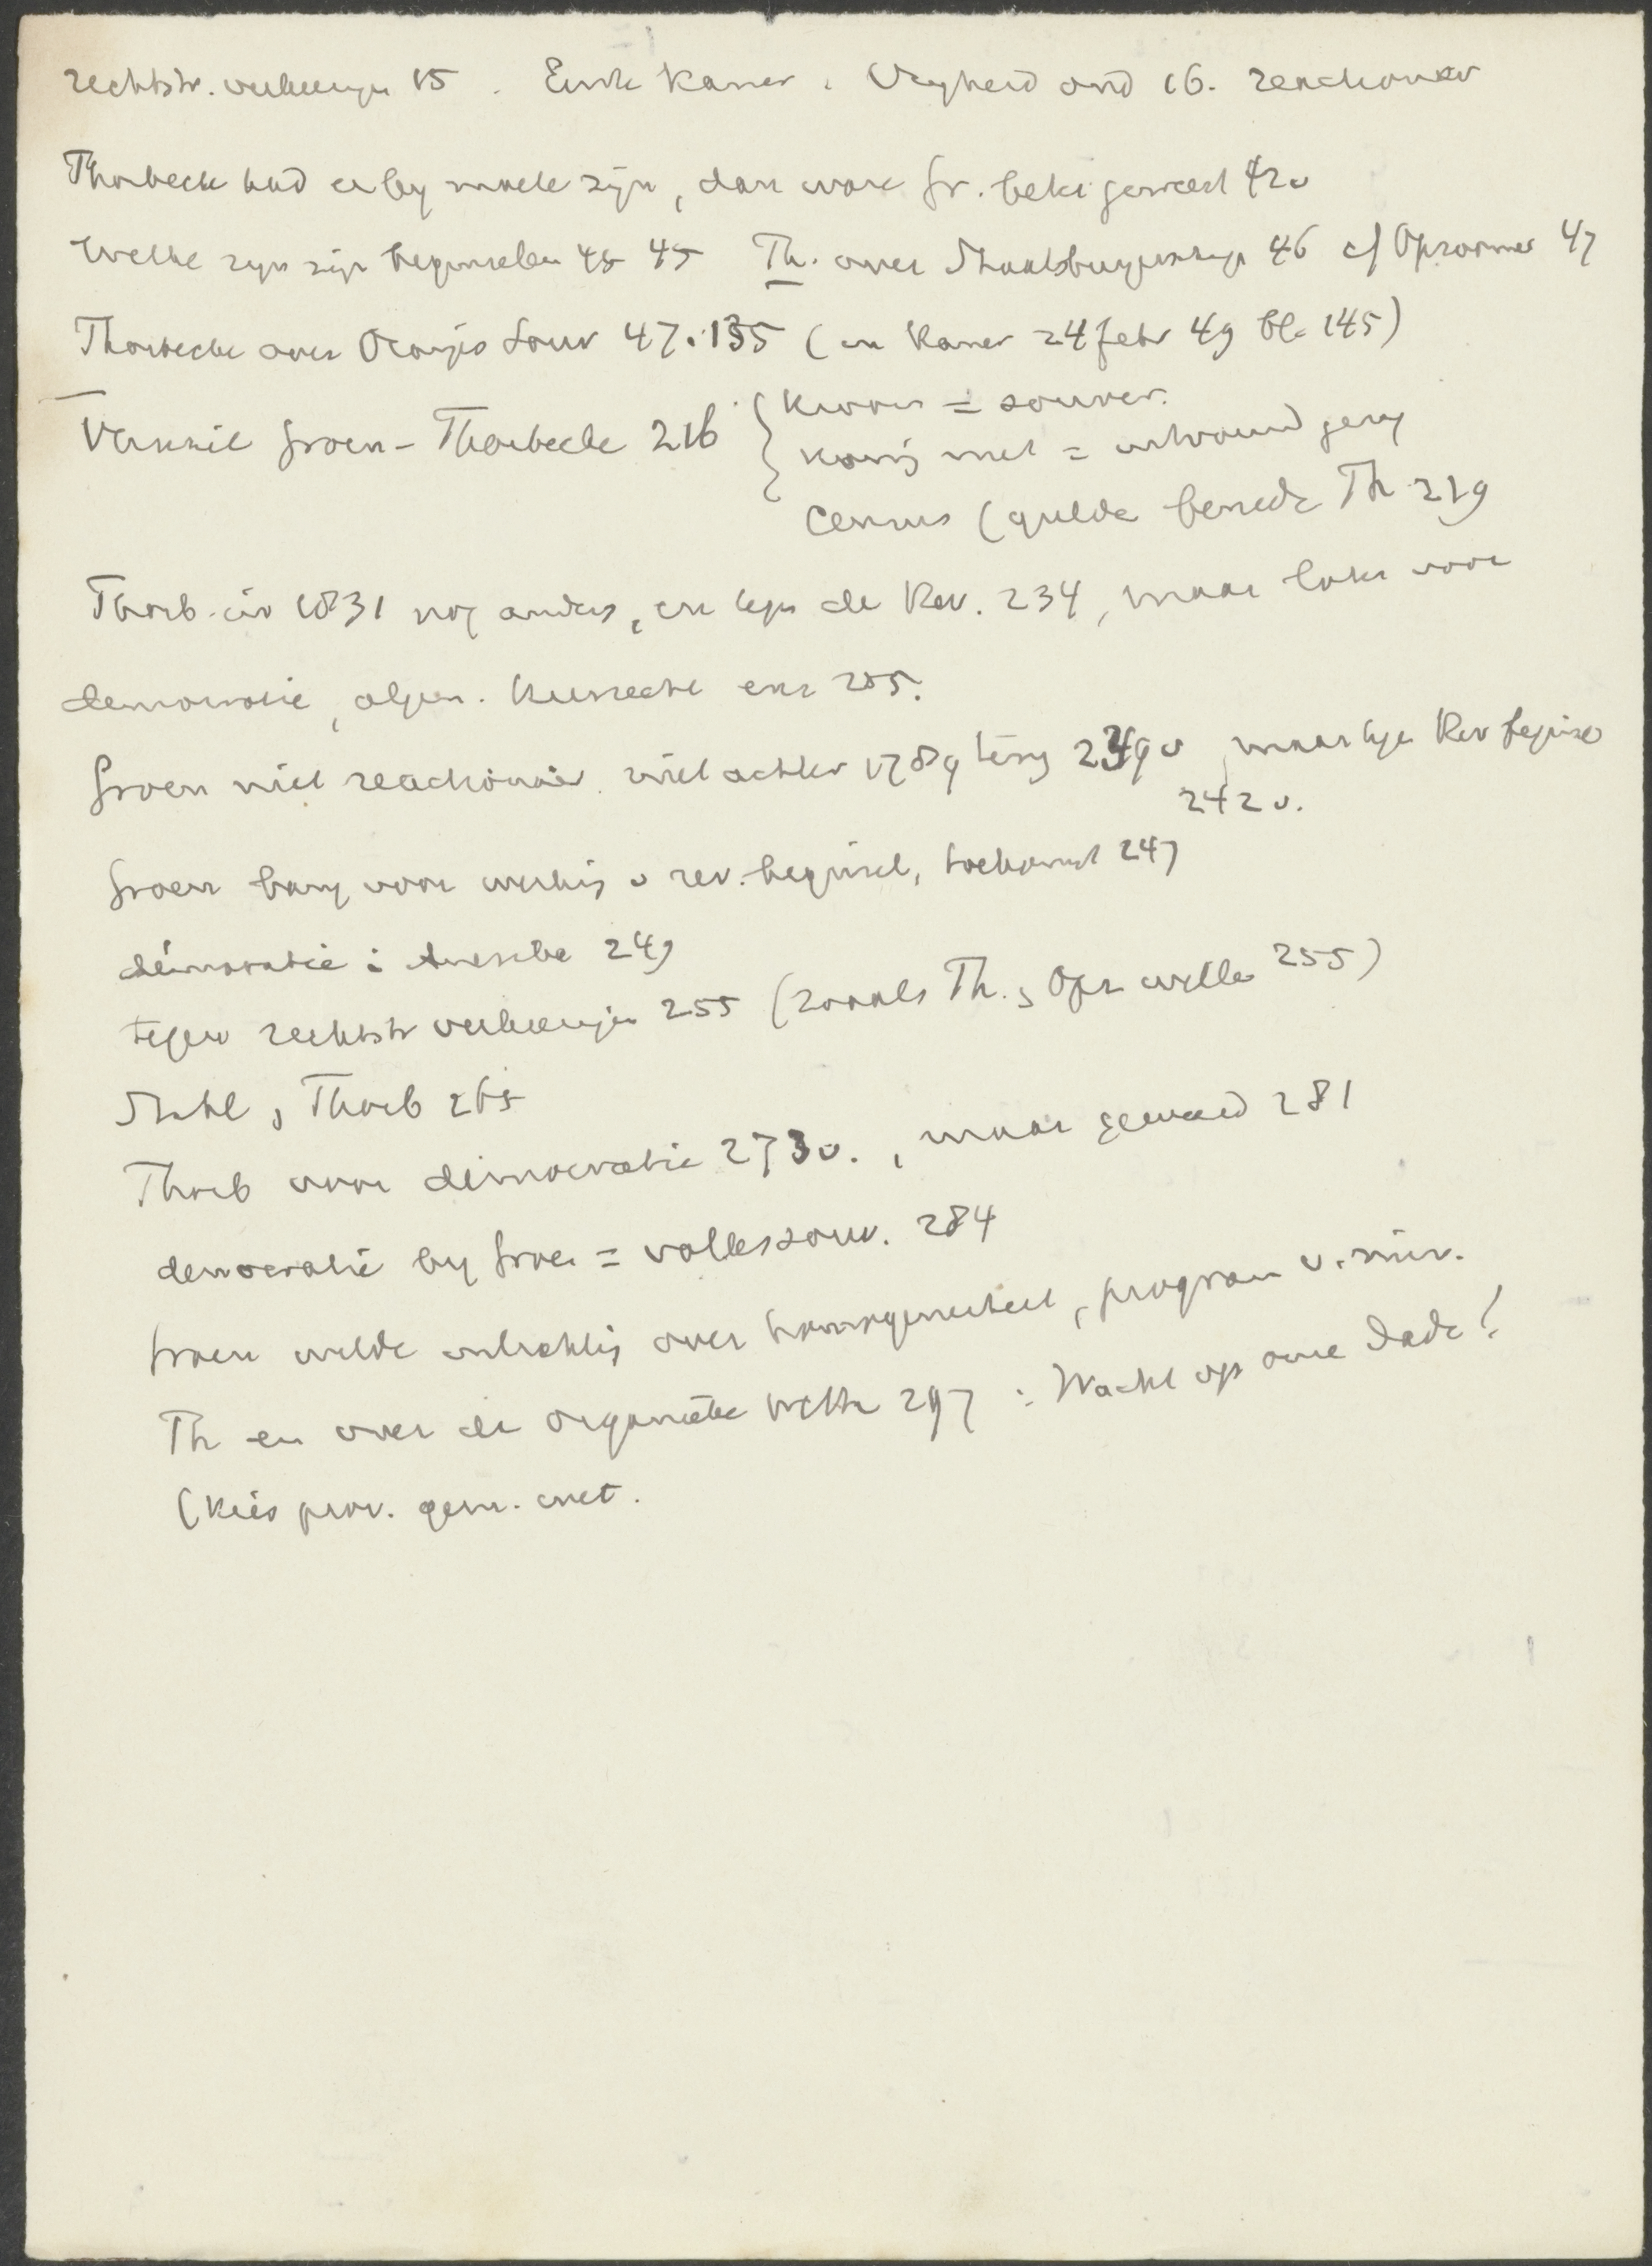 rechtstr. verkiezgn 15. Eerste Kamer. Vryheid ond 16. reactionair
Thorbecke had er by moete zijn, dan ware Gr. beter geweest 42v
Welke zijn zijn beginselen 45 45 Th. over Staatsburgerschap 46 cf Opzoomer 47
Thorbecke over Oranjes Souv 47. 135 (in Kamer 24 febr 49 bl. 145)
Verschil Groen - Thorbecke 216 { Kroon = souver.
Koning met = gezag
Census (gulden beneden Th 219
Thorb. in 1831 nog anders, en tegen de Rev. 234, maar later voor
democratie, algem. Kiesrecht enz 235.
Groen niet reactionair. niet achter 1789 terug 239 v, maar tegen Rev beginsel
242 v.
Groen bang voor werking v rev. beginsel, toekomst 247
democratie: 249
tegen rechtstr verkiezingen 255 (zooals Th. , Opz willen 255)
Stahl, Thorb 265
Thorb voor democratie 273v., maar 281
democratie by Groen = volkssouv. 284
Groen wilde over homogeniteit, program v. min.
Th en over de organieke wetten 297: Wacht op onze daden!
(Kies prov. gem. wet.